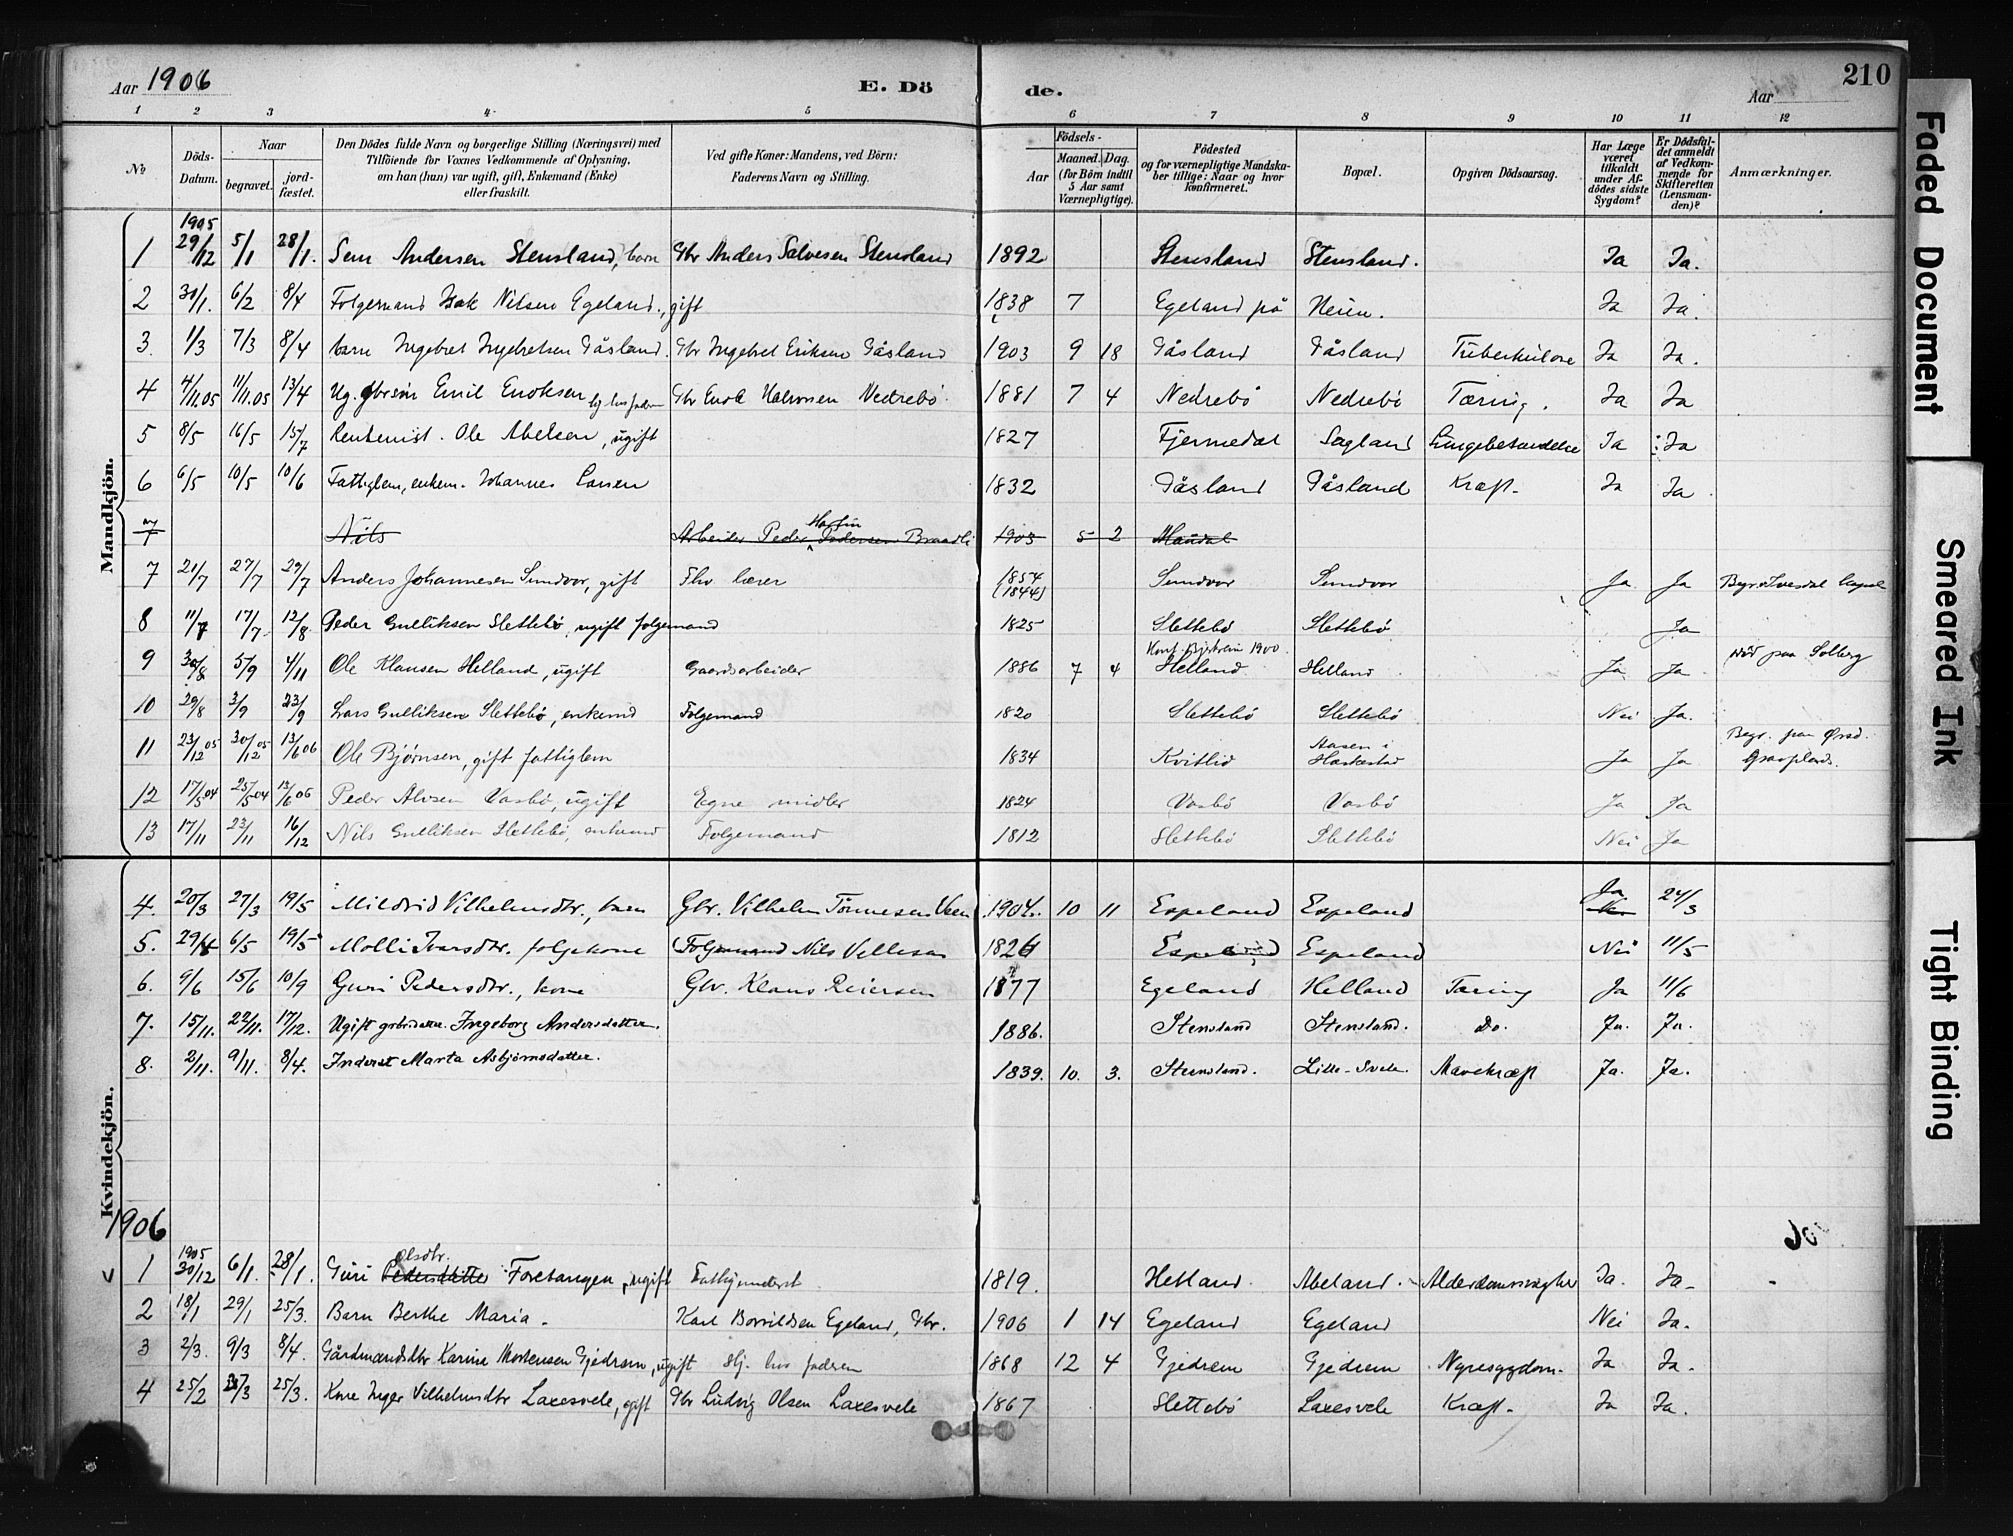 Aar 1906 E. Dö de. Aar 210
1 2 3 4 5 6 7 8 9 10 11 12
No
Döds-Datum.
Naar
begravet.
jord-fæstet.
Den Dödes fulde Navn og borgerlige Stilling (Næringsvei) med
Tilföiende for Voxnes Vedkommende af Oplysning.
om han (hun) var ugift, gift, Enkemand (Enke)
eller fraskilt.
Ved gifte Koner: Mandens, ved Börn:
Faderens Navn og Stilling.
Födsels-
Aar
Maaned. Dag.
(for Börn indtil
5 Aar samt
Værnepligtige).
Födested
og for værnepligtige Mandska-
ber tillige: Naar og hvor
konfirmeret.
Bopæl.
Opgiven Dödsaarsag.
Har Læge
været
tilkaldt
under Af-
dödes sidste
Sygdom?
Er Dödsfal-
det anmeldt
af Vedkom-
mende for
Skifteretten
(Lensman-
den)?
Anmærkninger.
Mandkjön.
1905
1 29/12 5/1 28/1. Sem Andersen Stensland, barn Gbr Anders Salvesen Stensland 1892 Stensland Stensland. Ja Ja.
2 30/1. 6/2 8/4 Folgemand Isak Nilsen Egeland., gift 1838 7 Egeland på Heien. Ja Ja.
3. 1/3 7/3 8/4 barn Ingebret Ingebretsen Gåsland. Gbr Ingebret Eriksen Gåsland 1903 9 18 Gåsland Gåsland Tuberkulose Ja Ja.
4 4/11.05 11/11.05 13/4 Ug. gbrsön Emil Enoksen hj. hos faderen Gbr Enok Halvorsen Nedrebö. 1881 7 4 Nedrebö Nedrebö Tæring. Ja Ja
5 8/5 16/5 15/7 Rentenist. Ole Abelsen, ugift 1827 Fjermedal Sagland Lungebetændelse Ja Ja
6 6/5 10/5 10/6 Fattiglem, enkem. Johannes Larsen 1832 Gåsland Gåsland Kræft. Ja Ja
7 Nils Arbeider Peder Martin Pedersen Braadli 1903 5 2 Maudal
7 21/7 27/7 29/7 Anders Johannesen Sundvor, gift Fhv. lærer 1854 (1844) Sundvor Sundvor Ja Ja Begr. Ivesdal Kapel
8 11/7 17/7 12/8. Peder Gulliksen Slettebö, ugift folgemand 1825 Slettebö Slettebö Ja
9 30/8 5/9 4/11 Ole Klausen Helland, ugift Gaardsarbeider 1886 7 4 Konf. Bjerkreim 1900. Helland Helland Ja Ja Död paa Solberg
10 29/8 3/9 23/9 Lars Gulliksen Slettebö, enkemd Folgemand 1820 Slettebö Slettebö Nei Ja.
11 23/12 05 30/12 05 13/6 06 Ole Bjørnsen, gift fattiglem 1834 Kvitlid Aasen i Haskestad Ja Ja Begr. paa Ørsd. Gravplads.
12 17/5 04 25/5 04 13/6 06 Peder Alvsen Vasbö, ugift Egne midler 1824 Vasbö Vasbö Ja Ja
13 17/11 23/11 16/12 Nils Gulliksen Slettebö, enkemd Folgemand 1812 Slettebö Slettebö Nei Ja
Kvindekjön.
4. 20/3 27/3 19/5 Mildrid Vilhelmsdtr., barn Gbr. Vilhelm Tönnesen Veen 1904. 10 11 Espeland Espeland Ja 24/3
5. 29/4 6/5 19/5 Molli Ivarsdtr. folgekone Folgemand Nils Vellesen 1826 Espeland Espeland Nei 11/5
6. 9/6 15/6 10/9 Guri Pedersdtr., kone Gbr. Klaus Reiersen 1877 Egeland Helland Tæring Ja 11/6
7. 15/11. 22/11. 17/12. Ugift gbrdatter. Ingeborg Andersdatter. 1886. Stensland Stensland. Do. Ja. Ja.
8. 2/11. 9/11. 8/4. Inderst Marta Asbjörnsdatter. 1839. 10. 3. Stensland. Lille-Svele. Mavekræft Ja. Ja.
1906
1905
1 30/12 6/1. 28/1. Guri Pedersdatter Olsdtr. Foretangen, ugift Fattigunderst. 1819. Hetland. Abeland. Alderdomssvaghet Ja. Ja.
2 18/1 29/1 25/3. Barn Berthe Maria. Karl Borrildsen Egeland, Gbr. 1906 1 14 Egeland Egeland Nei Ja.
3 2/3. 9/3 8/4. Gårdmandsdtr Karine Mortensen Gjedrem, ugift Hj. hos faderen 1868 12 4 Gjedrem Gjedrem Nyresygdom. Ja Ja.
4 25/2 3/3 25/3. Kone Inger Vilhelmsdtr Laxesvele, gift Gbr Ludvig Olsen Laxesvele 1867 Slettebö Laxesvele Kræft. Ja Ja.
Faded Document
Smeared Ink
Tight Binding